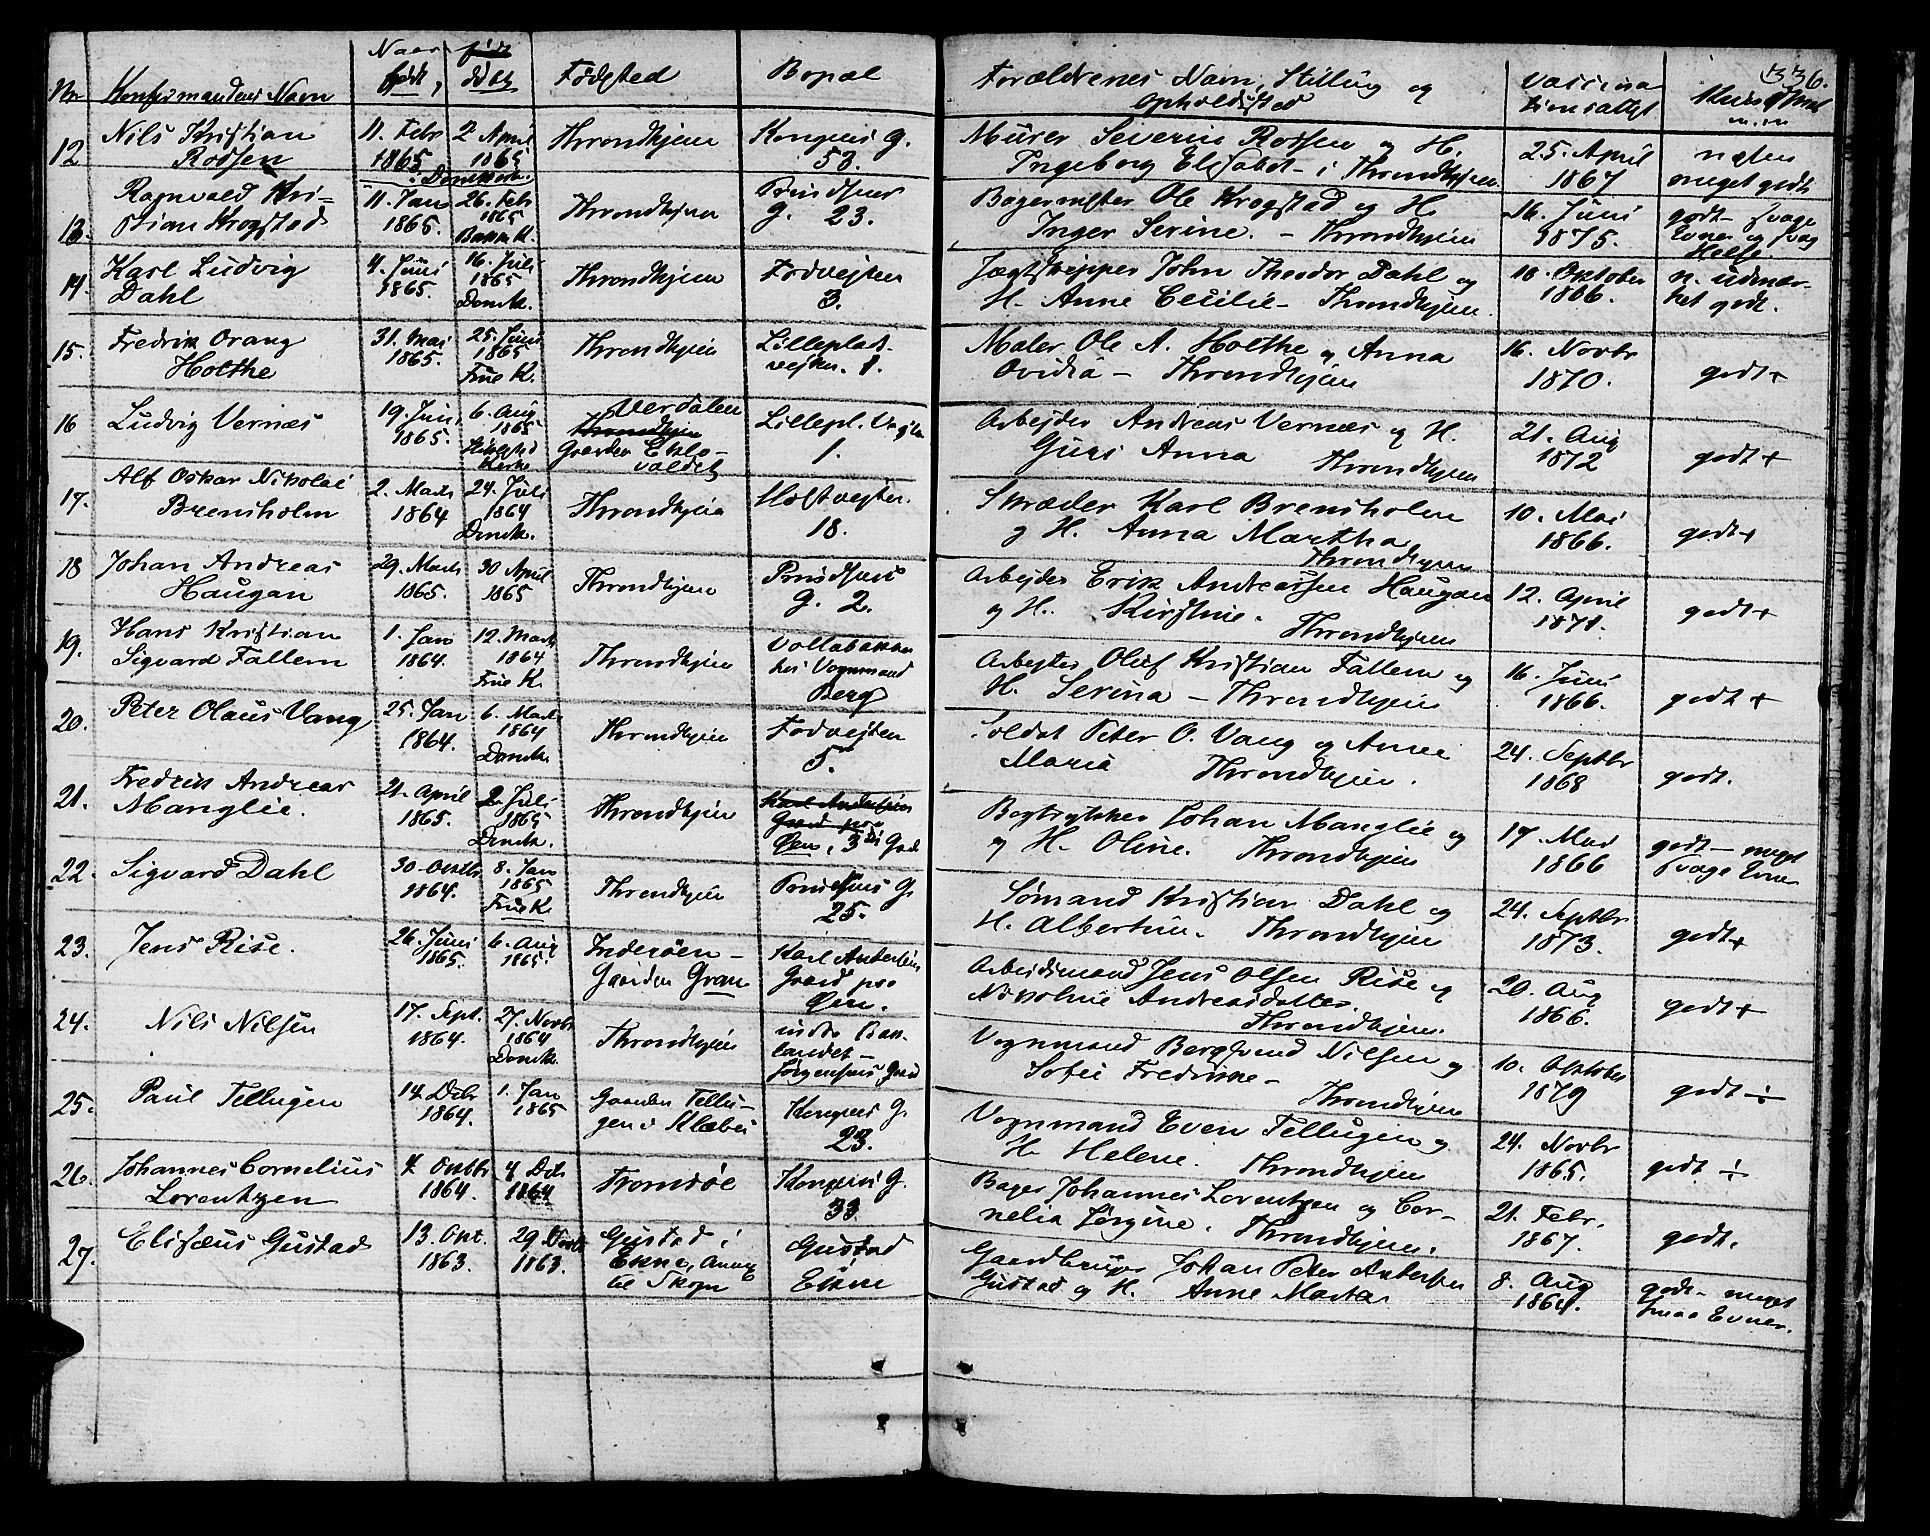 336.
Nr. Konfirmandens Navn Naar født, døbt Fødested Bopæl Forældrenes Navn, Stilling og Opholdssted Vaccinationsattest Kundskab m.m.
12 Nils Kristian Rossen 11. Febr 1865 2 April 1865 Domk Throndhjem Kongens g. 53. Murer Severin Rossen og H. Ingeborg Elisabet - i Throndhjem 25. April 1867 næsten meget godt
13. Ragnvald Kristian Krogstad 11. Jan 1865. 26. Febr 1865 Bakke K. Throndhjem Prindsens g. 23. Bagermester Ole Krogstad og H. Inger Serine. - Throndhjem 16. Juni 1875. godt - svage Evner og svag Helse.
14. Karl Ludvig Dahl 4. Juni 1865. 16. Juli 1865 Domk. Throndhjem Fodvejten 3. Jægtskipper John Theodor Dahl og H. Anne Cecilie - Throndhjem. 18. Oktober 1866. n. udmærket godt.
15. Fredrik Orang Holthe 31. Mai 1865. 25. Juni 1865 Frue K. Throndhjem Lilleplads vejten. 1. Maler Ole A. Holthe og Anna Ovidia - Throndhjem 16. Novbr 1870. godt +
16 Ludvig Vernæs 19. Juni 1865. 6. Aug 1865 Kirke Verdalen Throndhjem Gaarden Eklovaldet Lillepl. Vejten 1. Arbejder Andreas Vernæs og H. Guri Anna Throndhjem 21. Aug 1872 godt +
17. Alf Oskar Nikolai Brensholm 2. Marts 1864 24. Juli 1864 Domk. Throndhjem Holstvejten. 18. Skræder Karl Brensholm og H. Anna Martha Throndhjem 10. Mai 1866. godt +
18 Johan Andreas Haugan 29. Marts 1865. 30 April 1865 Throndhjem Prindsens g. 2. Arbejder Erik Andreassen Haugan og H. Kirstine. Throndhjem 12. April 1871. godt +
19. Hans Kristian Sigvard Fallem 1. Jan 1864. 12. Marts 1864 Frue K. Throndhjem Vollabakken hos Vognmand Berg Arbejder Oluf Kristian Fallem og H. Serina - Throndhjem 16. Juni 1866. godt +
20. Peter Olaus Vang 25. Jan 1864. 6. Marts 1864 Domk. Throndhjem Fodvejten 5. Soldat Peter O. Vang og Anne Maria Throndhjem. 24. Septbr 1868 godt.
21. Fredrik Andreas Manglie. 21. April 1865. 2. Juli 1865 Domk. Throndhjem Karl Andersens Gaard paa Øen, 3die Gade Bogtrykker Johan Manglie og og H. Oline. Throndhjem 17. Mai 1866 godt - meget svage Evner
22. Sigvard Dahl 30. Octbr 1864. 8. Jan 1865 Frue K. Throndhjem Prindsens G. 25. Sømand Kristian Dahl og H. Albertine. Throndhjem 24. Septbr 1873. godt +
23. Jens Rise. 26. Juni 1865. 6. Aug 1865. Inderøen - Gaarden Gran Karl Andersens Gaard paa Øen. Arbeidsmand Jens Olsen Rise og Nikoline Andreasdatter. Throndhjem. 20. Aug 1866. godt +
24. Nils Nilsen 17. Sept. 1864. 27. Novbr 1864 Domk. Throndhjem indre Baklandet - Jørgensens Gaard Vognmand Bergsvend Nilsen og Sofie Fredrikke - Throndhjem 10. Oktober 1879 godt ÷
25. Paul Tellugen 14. Debr 1864. 1. Jan 1865 Gaarden Tellugen i Klæbu Kongens G. 23. Vognmand Even Tellugen og H. Helene. Throndhjem 24. Novbr 1865. godt ÷
26. Johannes Cornelius Lorentzen 4. Octbr 1864. 4. Debr 1864 Tromsøe Kongens G. 33. Bager Johannes Lorentzen og Cornelia Jørgine. Throndhjem. 21. Febr. 1867. godt.
27. Elisæus Gustad 13. Okt. 1863. 29. Novbr 1863. Gustad i Ekne, Annex til Skogn Gustad Ekne Gaardbruger Johan Peter Andersen Gustad og H. Anne Marta 8. Aug 1864. godt - meget smaa Evner.